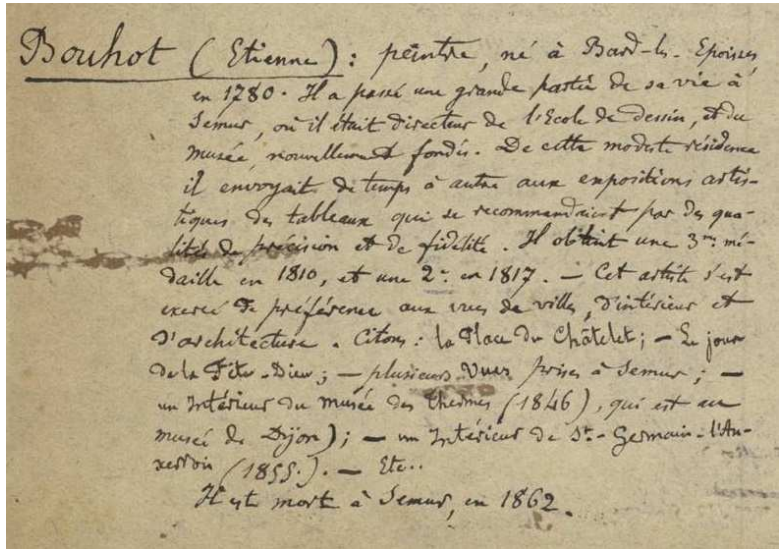 Bouhot (Etienne) : peintre, né à Bard-ls-Epoisses
en 1780. Il a passé une grande partie de sa vie à
Semur, où il était directeur de l'Ecole de dessin, et du
musée nouvellement fondés. De cette modeste résidence
il envoyait de temps à autre aux expositions artis-
tiques des tableaux qui se recommandaient par des qua-
lités de précision et de fidélité. Il obtint une 3me mé-
daille en 1810, et une 2e en 1817. — Cet artiste s'est
exercé de préférence aux vues de villes, d'intérieur et
d'architecture. Citons : la Place du Châtelet ; — Le jour
de la Fête-Dieu ; — plusieurs Vues prises à Semur ; —
un Intérieur du musée des Thermes (1846), qui est au
musée de Dijon) ; — un Intérieur de St-Germain-l'Au-
xerrois (1855). — Etc..
Il est mort à Semur, en 1862.